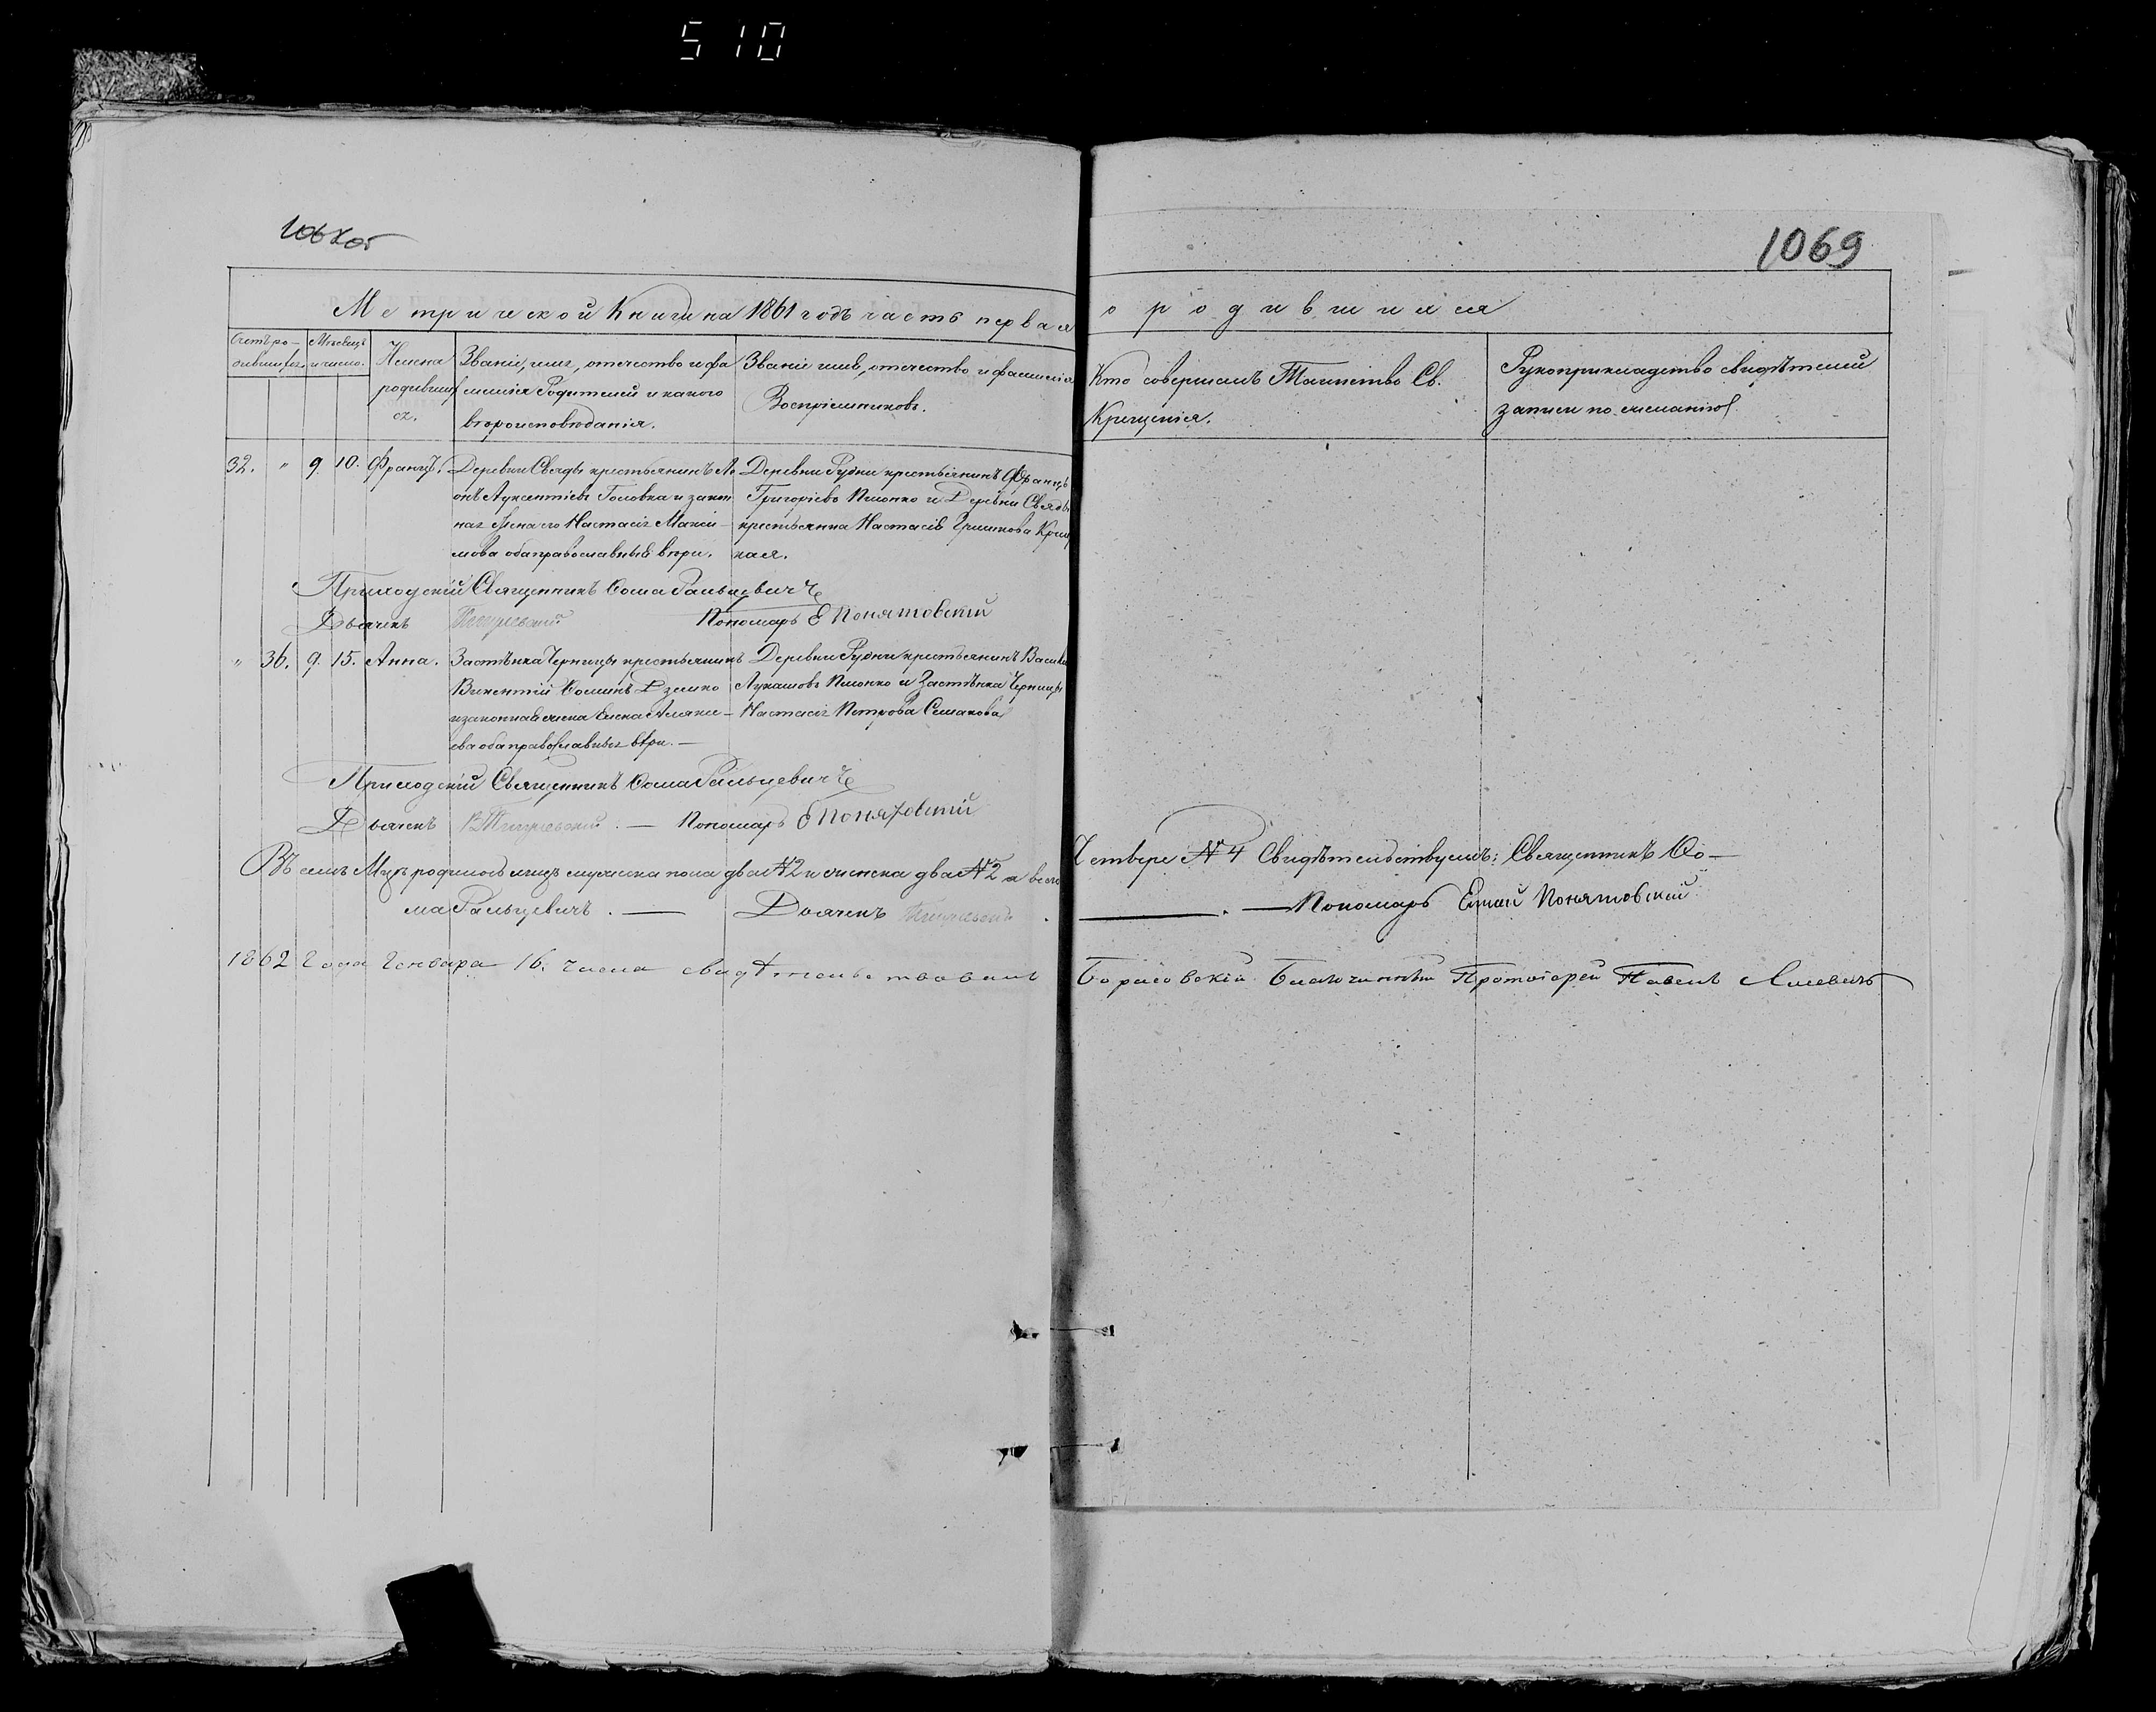 510
1069
Метрической Книги на 1861 годъ часть первая
о родившихся
Счетъ ро-
дившихся.
Мѣсяцъ
и число.
Имена
родивших
ся.
Званіе, имя, отечество и фа
милія Родителей и какого
вѣроисповѣданія.
Званіе имя, отечество и фамилія
Воспріемниковъ.
Кто совершалъ Таинство Св.
Крещенія.
Рукоприкладство свидѣтелей
записи по желанію
32. " 9. 10. Францъ.
Деревни Свяды крестьянинъ Ле
онъ Авксентіевъ Головка и закон
ная жена его Настасія Макси-
мова оба православной вѣри.
Деревни Рудни крестьянинъ Францъ
Григоріевъ Плонко и Деревни Свяды
крестьянка Настасія
кая.
Приходскій Священникъ Ѳома Гальцевичъ
Дьячекъ Пономарь Е Понятовскій
" 36. 9. 15. Анна.
Застѣнка Черницы крестьянинъ
Викентій Ѳоминъ Дземко
и законная жена Елена Алекси-
ева оба православныя вѣри. —
Деревни Рудни крестьянинъ Васил
Лукашовъ Плонко и Застѣнка Черницы
Настасія Петрова Симакова
Приходскій Священникъ Ѳома Гальцевичъ
Дьячекъ . — Пономарь Е Понятовскій
Въ семъ Мцѣ родилось лицъ мужеска пола два №2 и женска два №2 а всего
Четверо №4 Свидѣтельствуемъ: Священникъ Ѳо-
ма Гальцевичъ. — Дьячекъ
. — Пономарь Понятовскій
1862 Года Генваря 16. числа свидѣтельствовалъ
Борисовскій Благочинный Протоіерей Павелъ